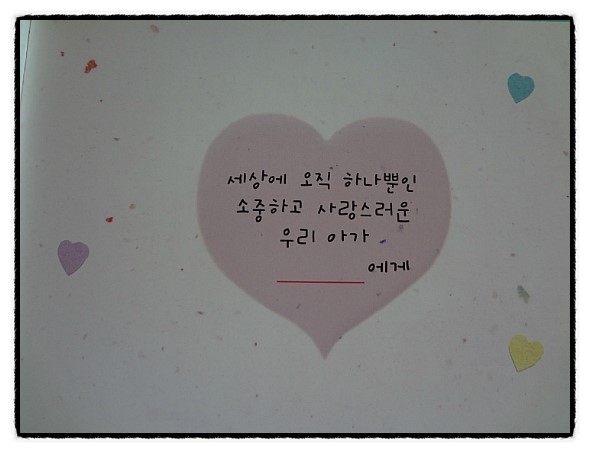 세상에 오직 하나뿐인
소중하고 사랑스러운
우리 아가
에게